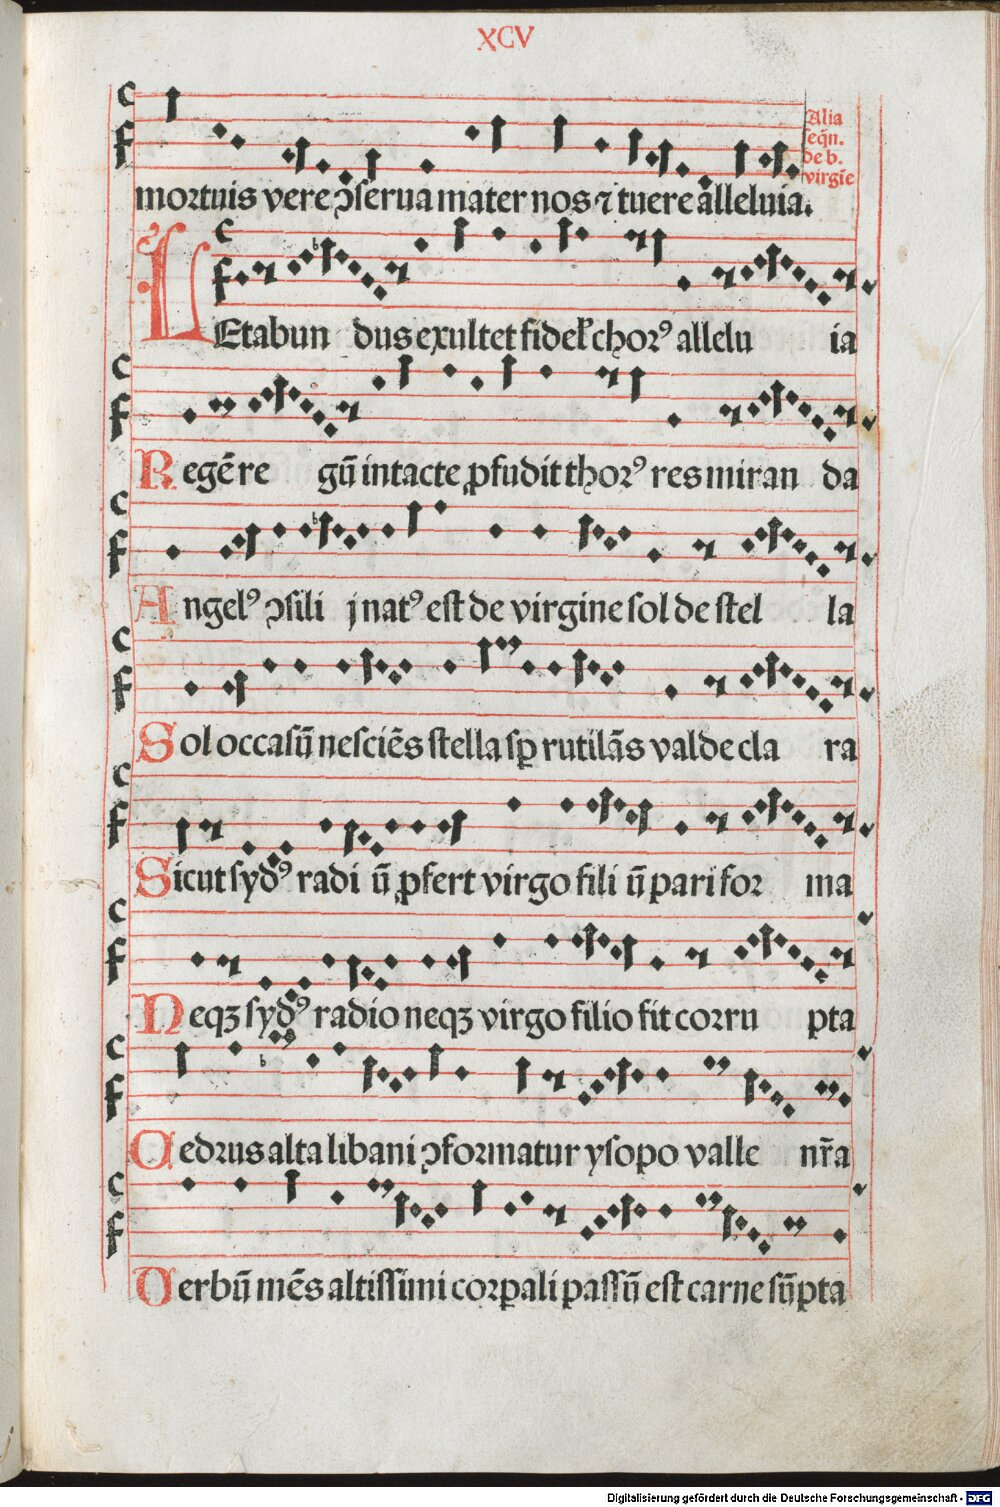 XCV
Alia
seq̄n.
de b.
virgīe
mortuis vere ↄserua mater nos ⁊ tuere alleluia.
LEtabun dus exultet fidelꝭ choꝛꝰ allelu ia
Regē re gū intacte ꝓfudit thoꝛꝰ res miran da
Angelꝰ ↄsili j natꝰ est de virgine sol de stel la
Sol occasū nesciēs stella sꝑ rutilās valde cla ra
Sicut sydꝰ radi ū ꝓfert virgo fili ū pari foꝛ ma
Neqꝫ sydꝰ radio neqꝫ virgo filio fit corru pta
Cedrus alta libani ↄformatur ysopo valle nr̄a
Verbū mēs altissimi coꝛꝑali passū est carne sūpta
Digitalisierung gefördert durch die Deutsche Forschungsgemeinschaft - DFG